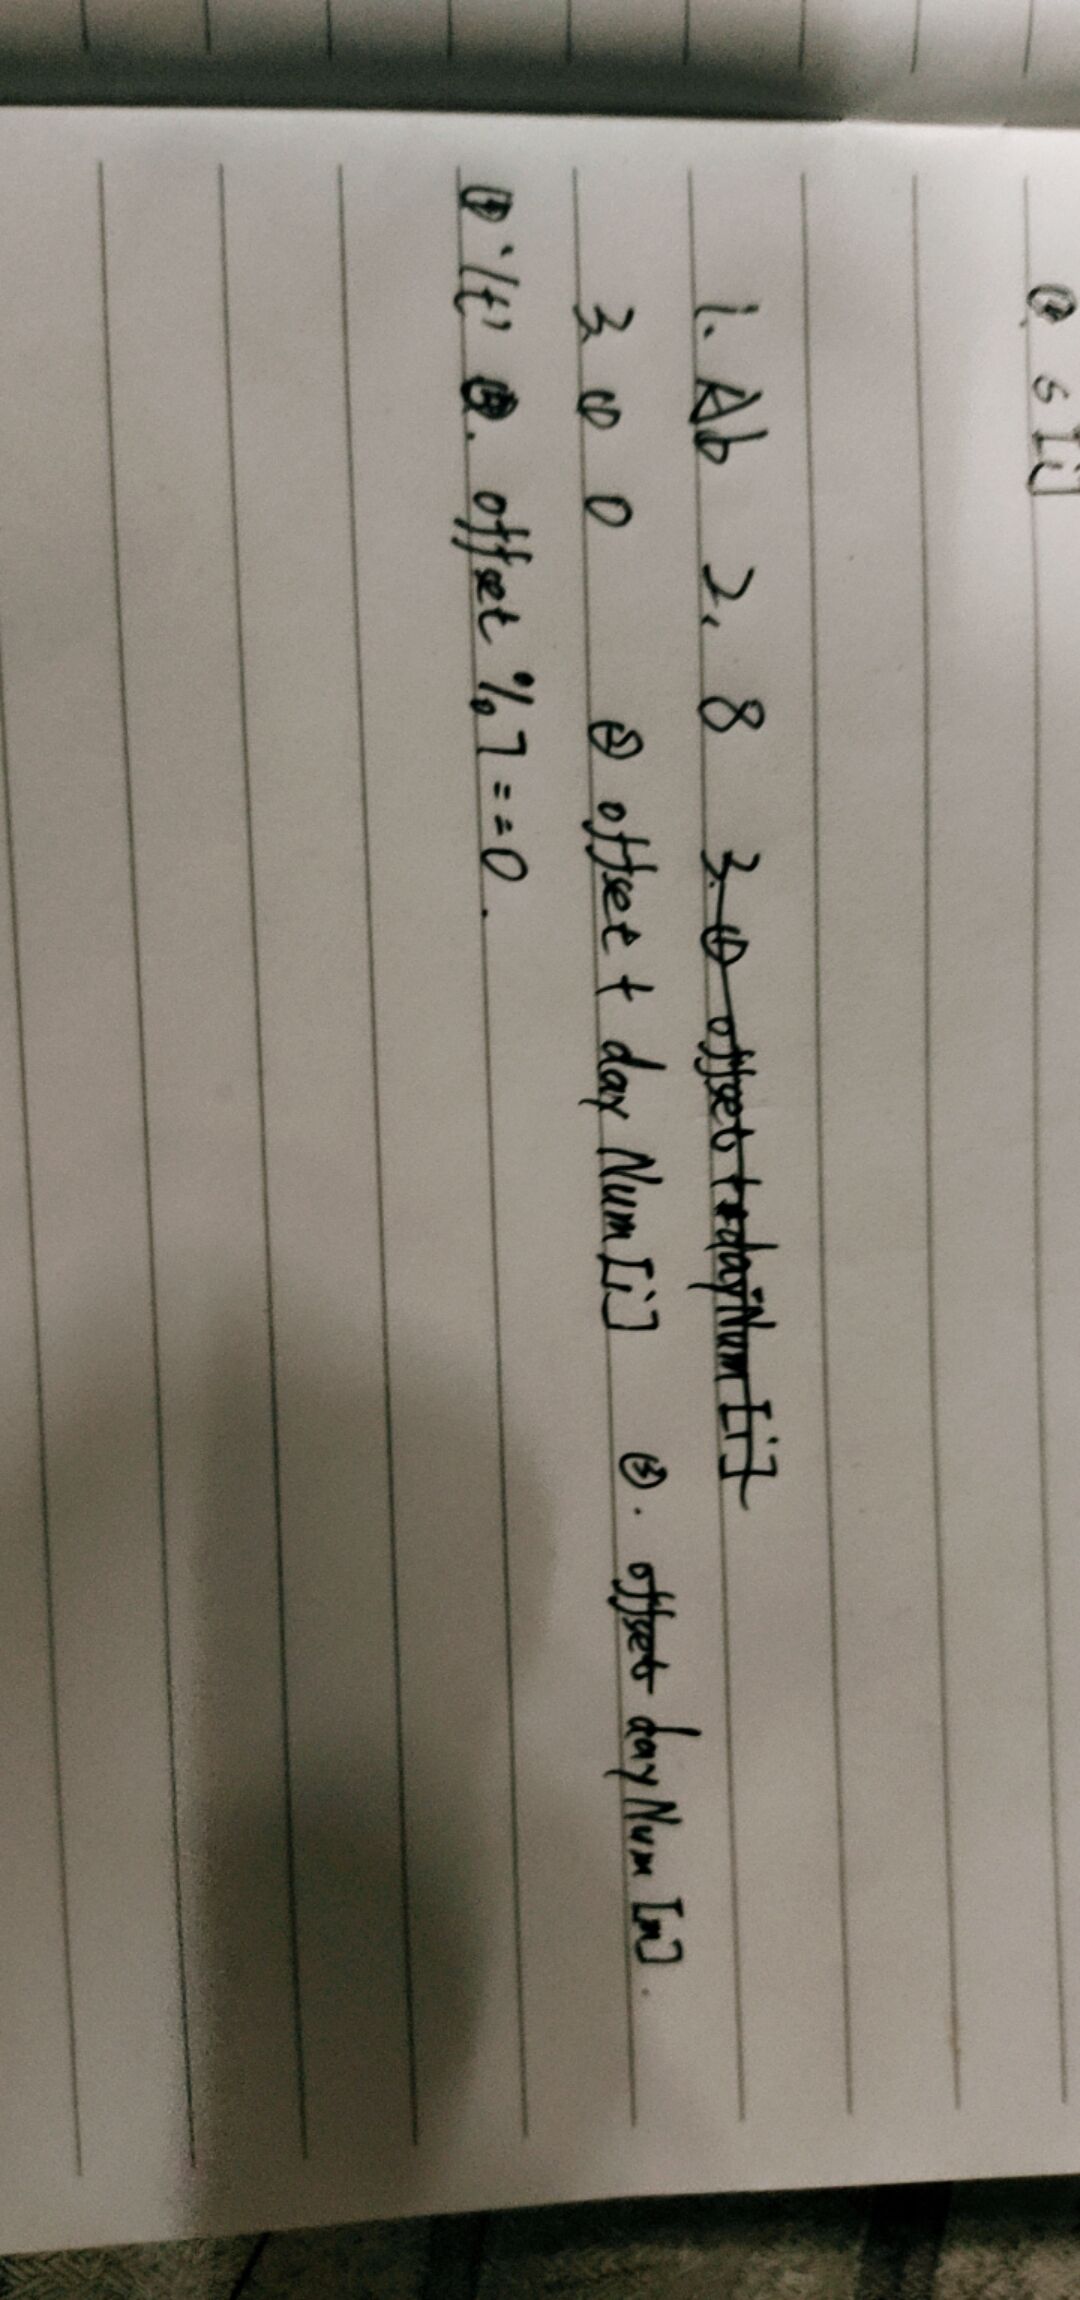 ④. s[i]
1. Ab 2. 8 3. ① offset + dayNum[i]
3. ① 0 ② offset + dayNum[i] ③. offset dayNum[n].
④ '\t' ⑤. offset % 7 == 0.